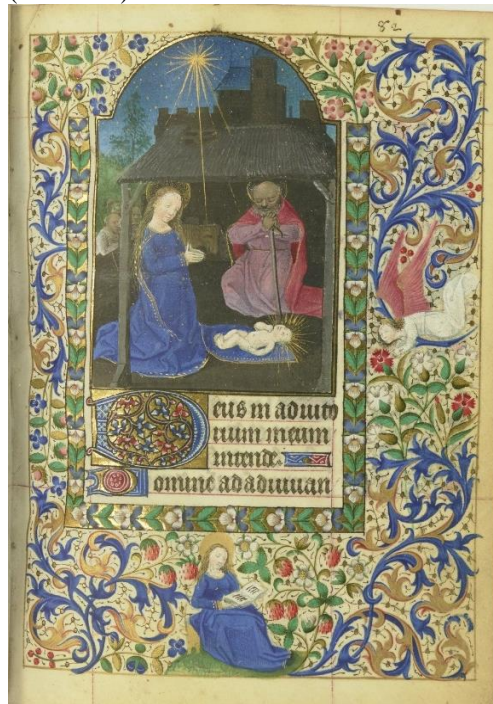 82
Deus in adiuto
rium meum
intende.
Domine ad adiuuan